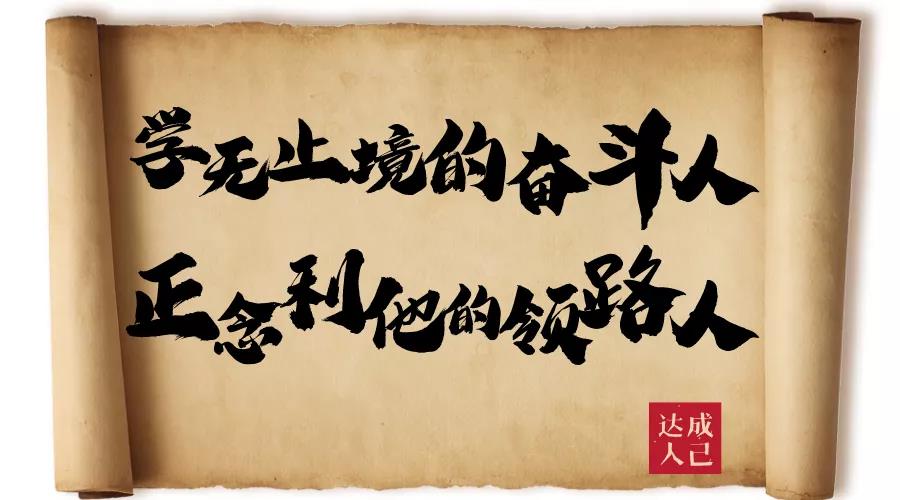 学无止境的奋斗人
正念利他的领路人
成己
达人